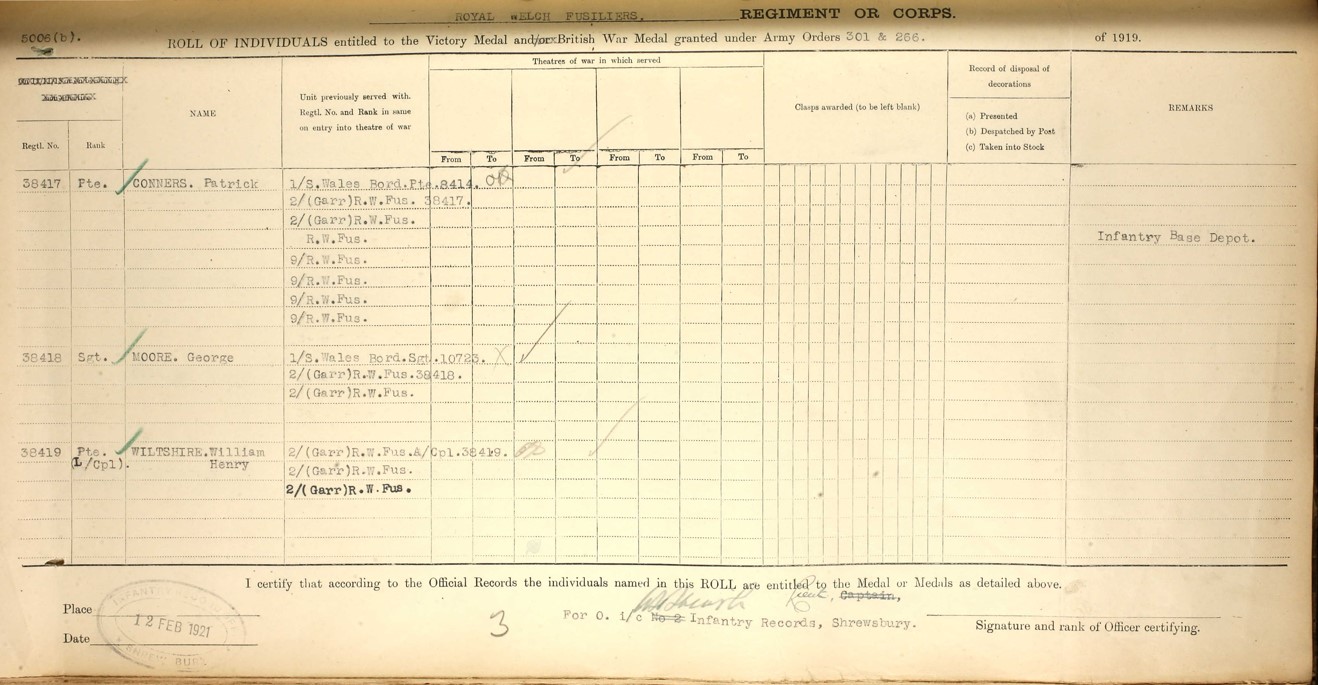 ROYAL WELCH FUSILIERS. REGIMENT OR CORPS.
5006(b).
ROLL OF INDIVIDUALS entitled to the Victory Medal and/or British War Medal granted under Army Orders 301 & 266. of 1919.
Theatres of war in which served
Record of disposal of
decorations
Unit previously served with.
Regtl. No. and Rank in same
on entry into theatre of war
NAME
Clasps awarded (to be left blank)
REMARKS
(a) Presented
(b) Despatched by Post
(c) Taken into Stock
Regtl. No. Rank
From To From To From To From To
38417 Pte. CONNERS. Patrick 1/S.Wales Bord.Pte.8414.
2/(Garr)R.W.Fus. 38417.
2/(Garr)R.W.Fus.
R.W.Fus. Infantry Base Depot.
9/R.W.Fus.
9/R.W.Fus.
9/R.W.Fus.
9/R.W.Fus.
38418 Sgt. MOORE. George 1/S.Wales Bord.Sgt.10723. X
2/(Garr)R.W.Fus.38418.
2/(Garr)R.W.Fus.
38419 Pte. WILTSHIRE.William 2/(Garr)R.W.Fus.A/Cpl.38419.
(L/Cpl). Henry 2/(Garr)R.W.Fus.
2/(Garr)R.W.Fus.
I certify that according to the Official Records the individuals named in this ROLL are entitled to the Medal or Medals as detailed above.
Lieut, Captain,
Place
12 FEB 1921
3
For O. i/c No 2 Infantry Records, Shrewsbury.
Signature and rank of Officer certifying.
Date